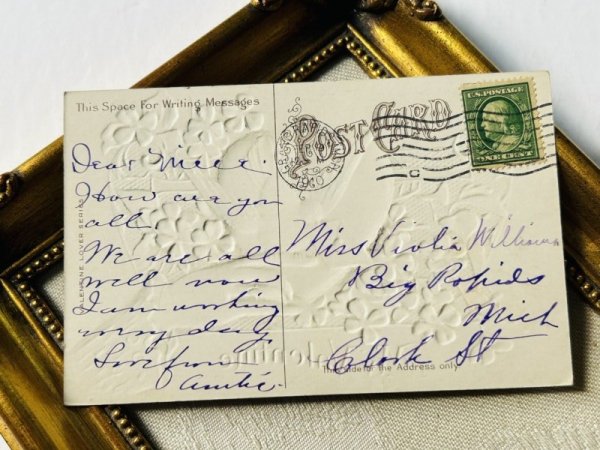 This Space For Writing Messages
POST CARD
U.S. POSTAGE
ONE CENT
Dear Niece.
How are you
all.
We are all
well now
I am working
every day.
Love from
Auntie.
VALENTINE LOVER SERIES
Miss Violia Williams
Big Rapids
Mich
Clark St
Valentine
This side for the Address only